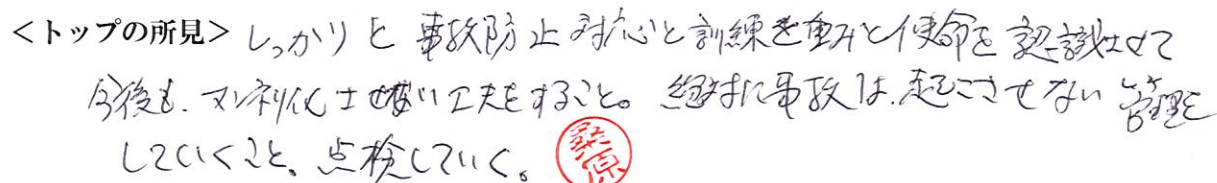 <トップの所見> しっかりと事故防止対応と訓練を重みと使命を認識させて
今後も、マンネリ化させない工夫をすること。絶対に事故は、起こさせない管理を
していくこと、点検していく。
桑原